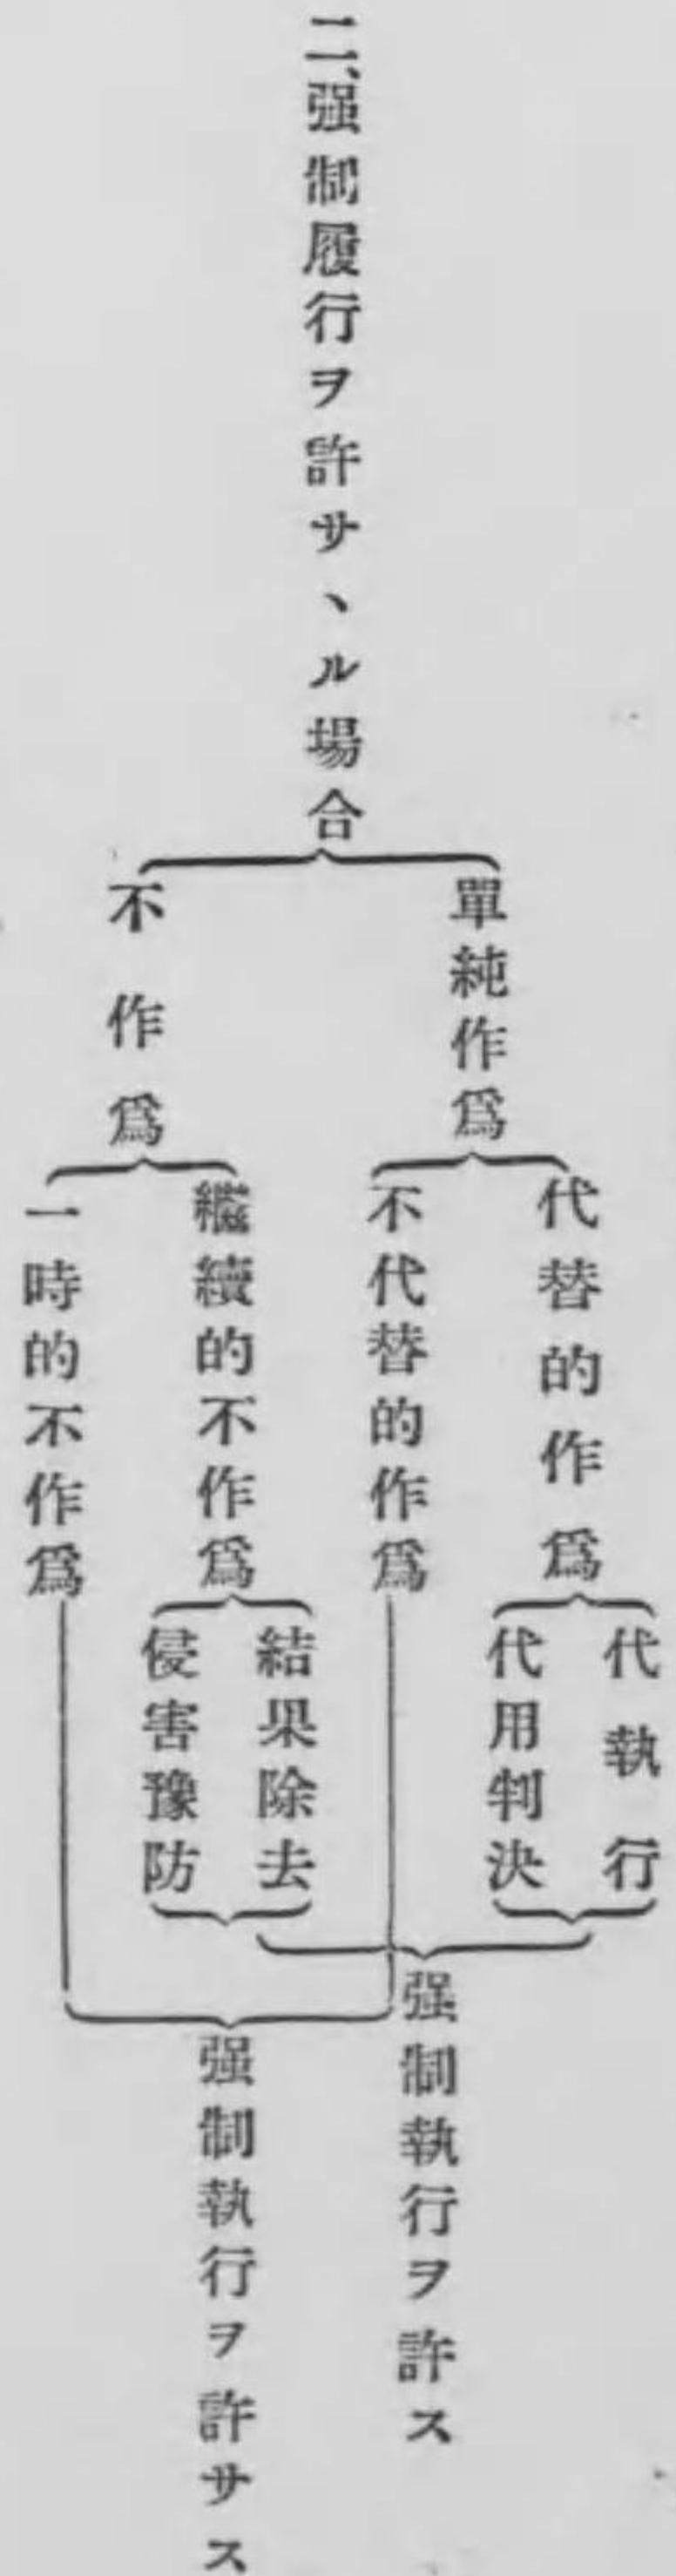 二、强制履行ヲ許サヽル場合
單純作爲
代替的作爲
代執行
代用判決
不代替的作爲
强制執行ヲ許ス
不作爲
繼續的不作爲
結果除去
侵害豫防
一時的不作爲
强制執行ヲ許サス